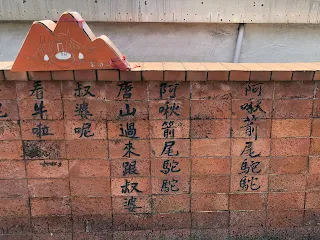 阿啾箭尾駝駝
阿啾箭尾駝駝
唐山過來跟叔婆
叔婆呢
看牛啦